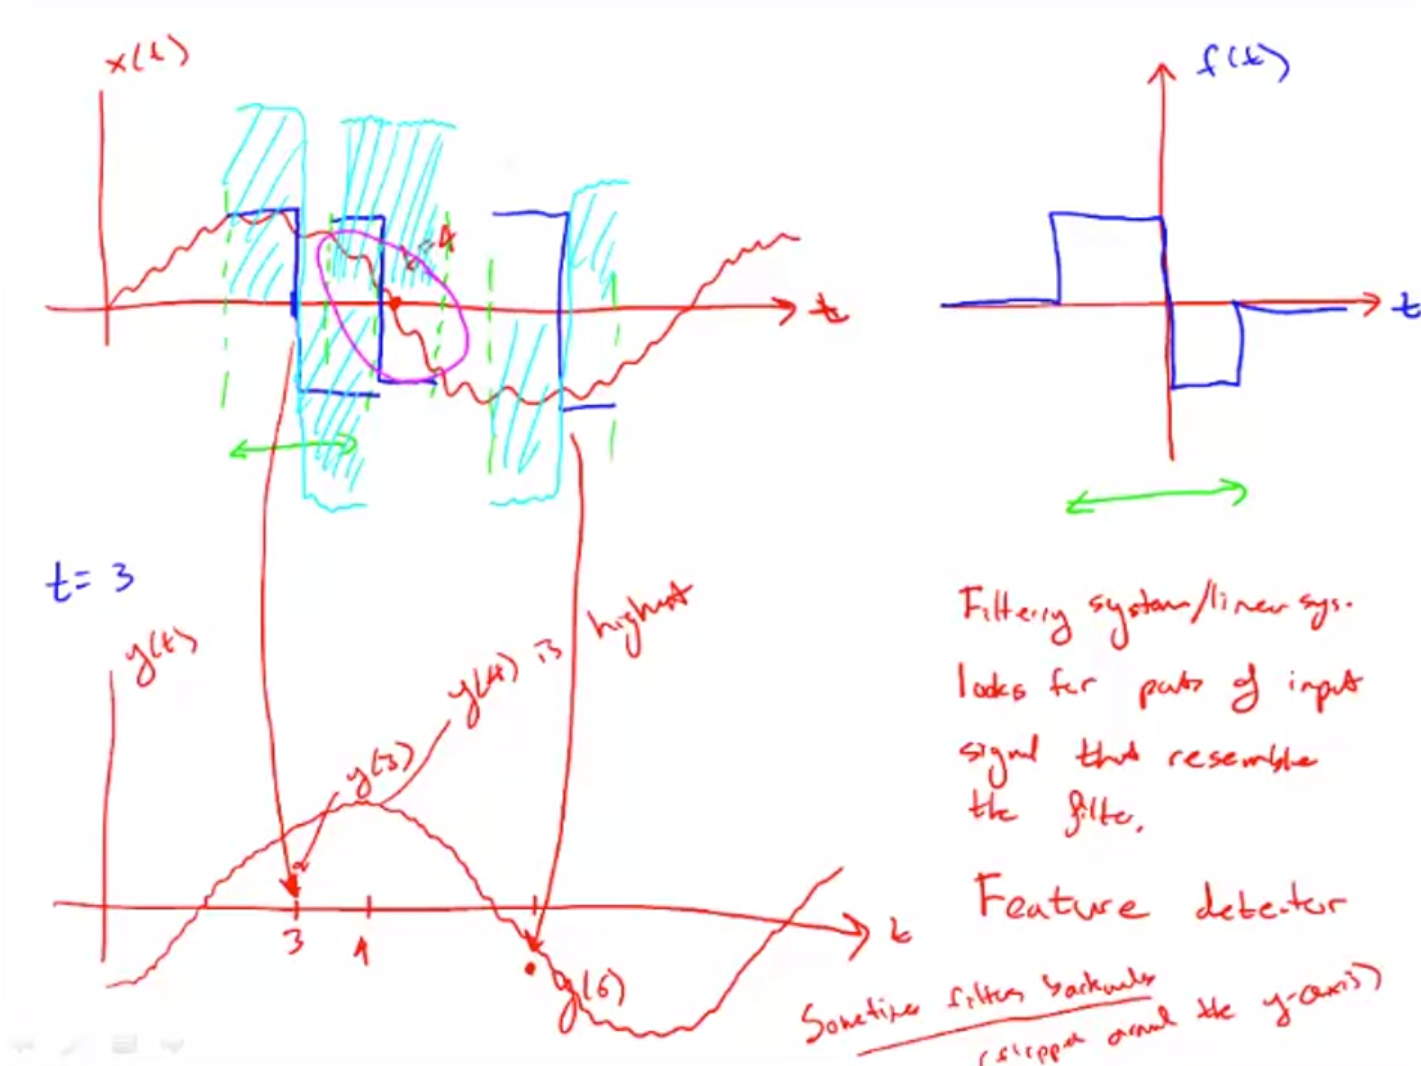 x(t)
f(t)
t=4
t
t
t= 3
y(t)
y(4) is highest
y(3)
3
4
t
y(6)
Filtering system/linear sys.
looks for parts of input
signal that resemble
the filter.
Feature detector
Sometimes filters backwards
(flipped around the y-axis)